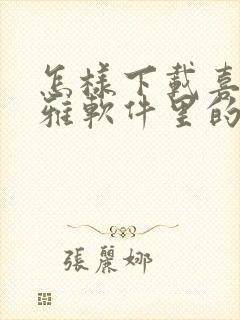 怎様下載喜
雅軟件里的
張麗娜